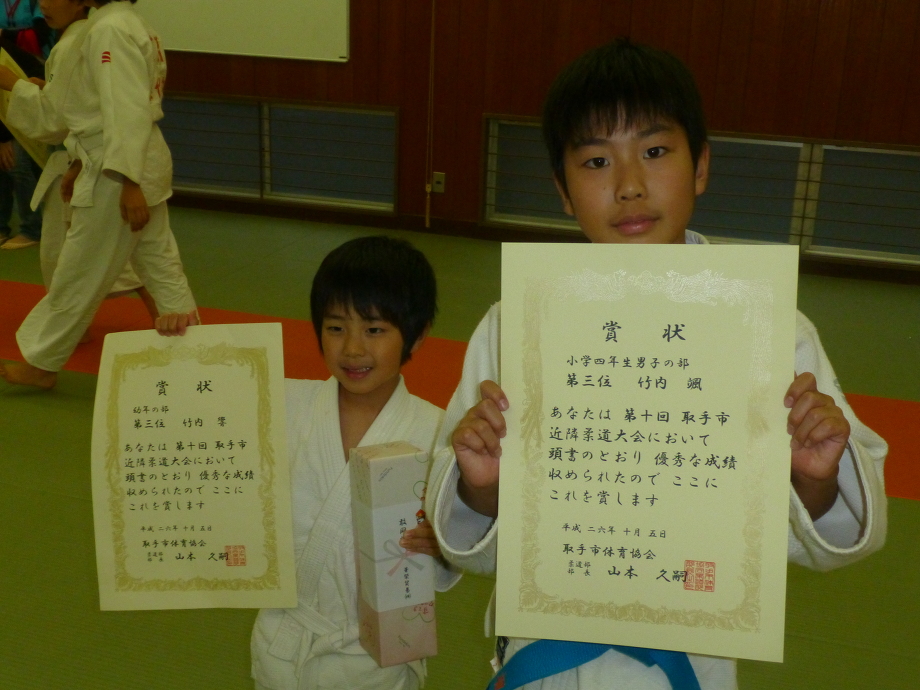 賞 状
幼年の部
第三位 竹内 響
あなたは 第十回 取手市
近隣柔道大会において
頭書のとおり 優秀な成績
収められたので ここに
これを賞します
平成 二六年 十月 五日
取手市体育協会
柔道部
部長 山本 久嗣
賞 状
小学四年生男子の部
第三位 竹内 颯
あなたは 第十回 取手市
近隣柔道大会において
頭書のとおり 優秀な成績
収められたので ここに
これを賞します
平成 二六年 十月 五日
取手市体育協会
柔道部
部長 山本 久嗣